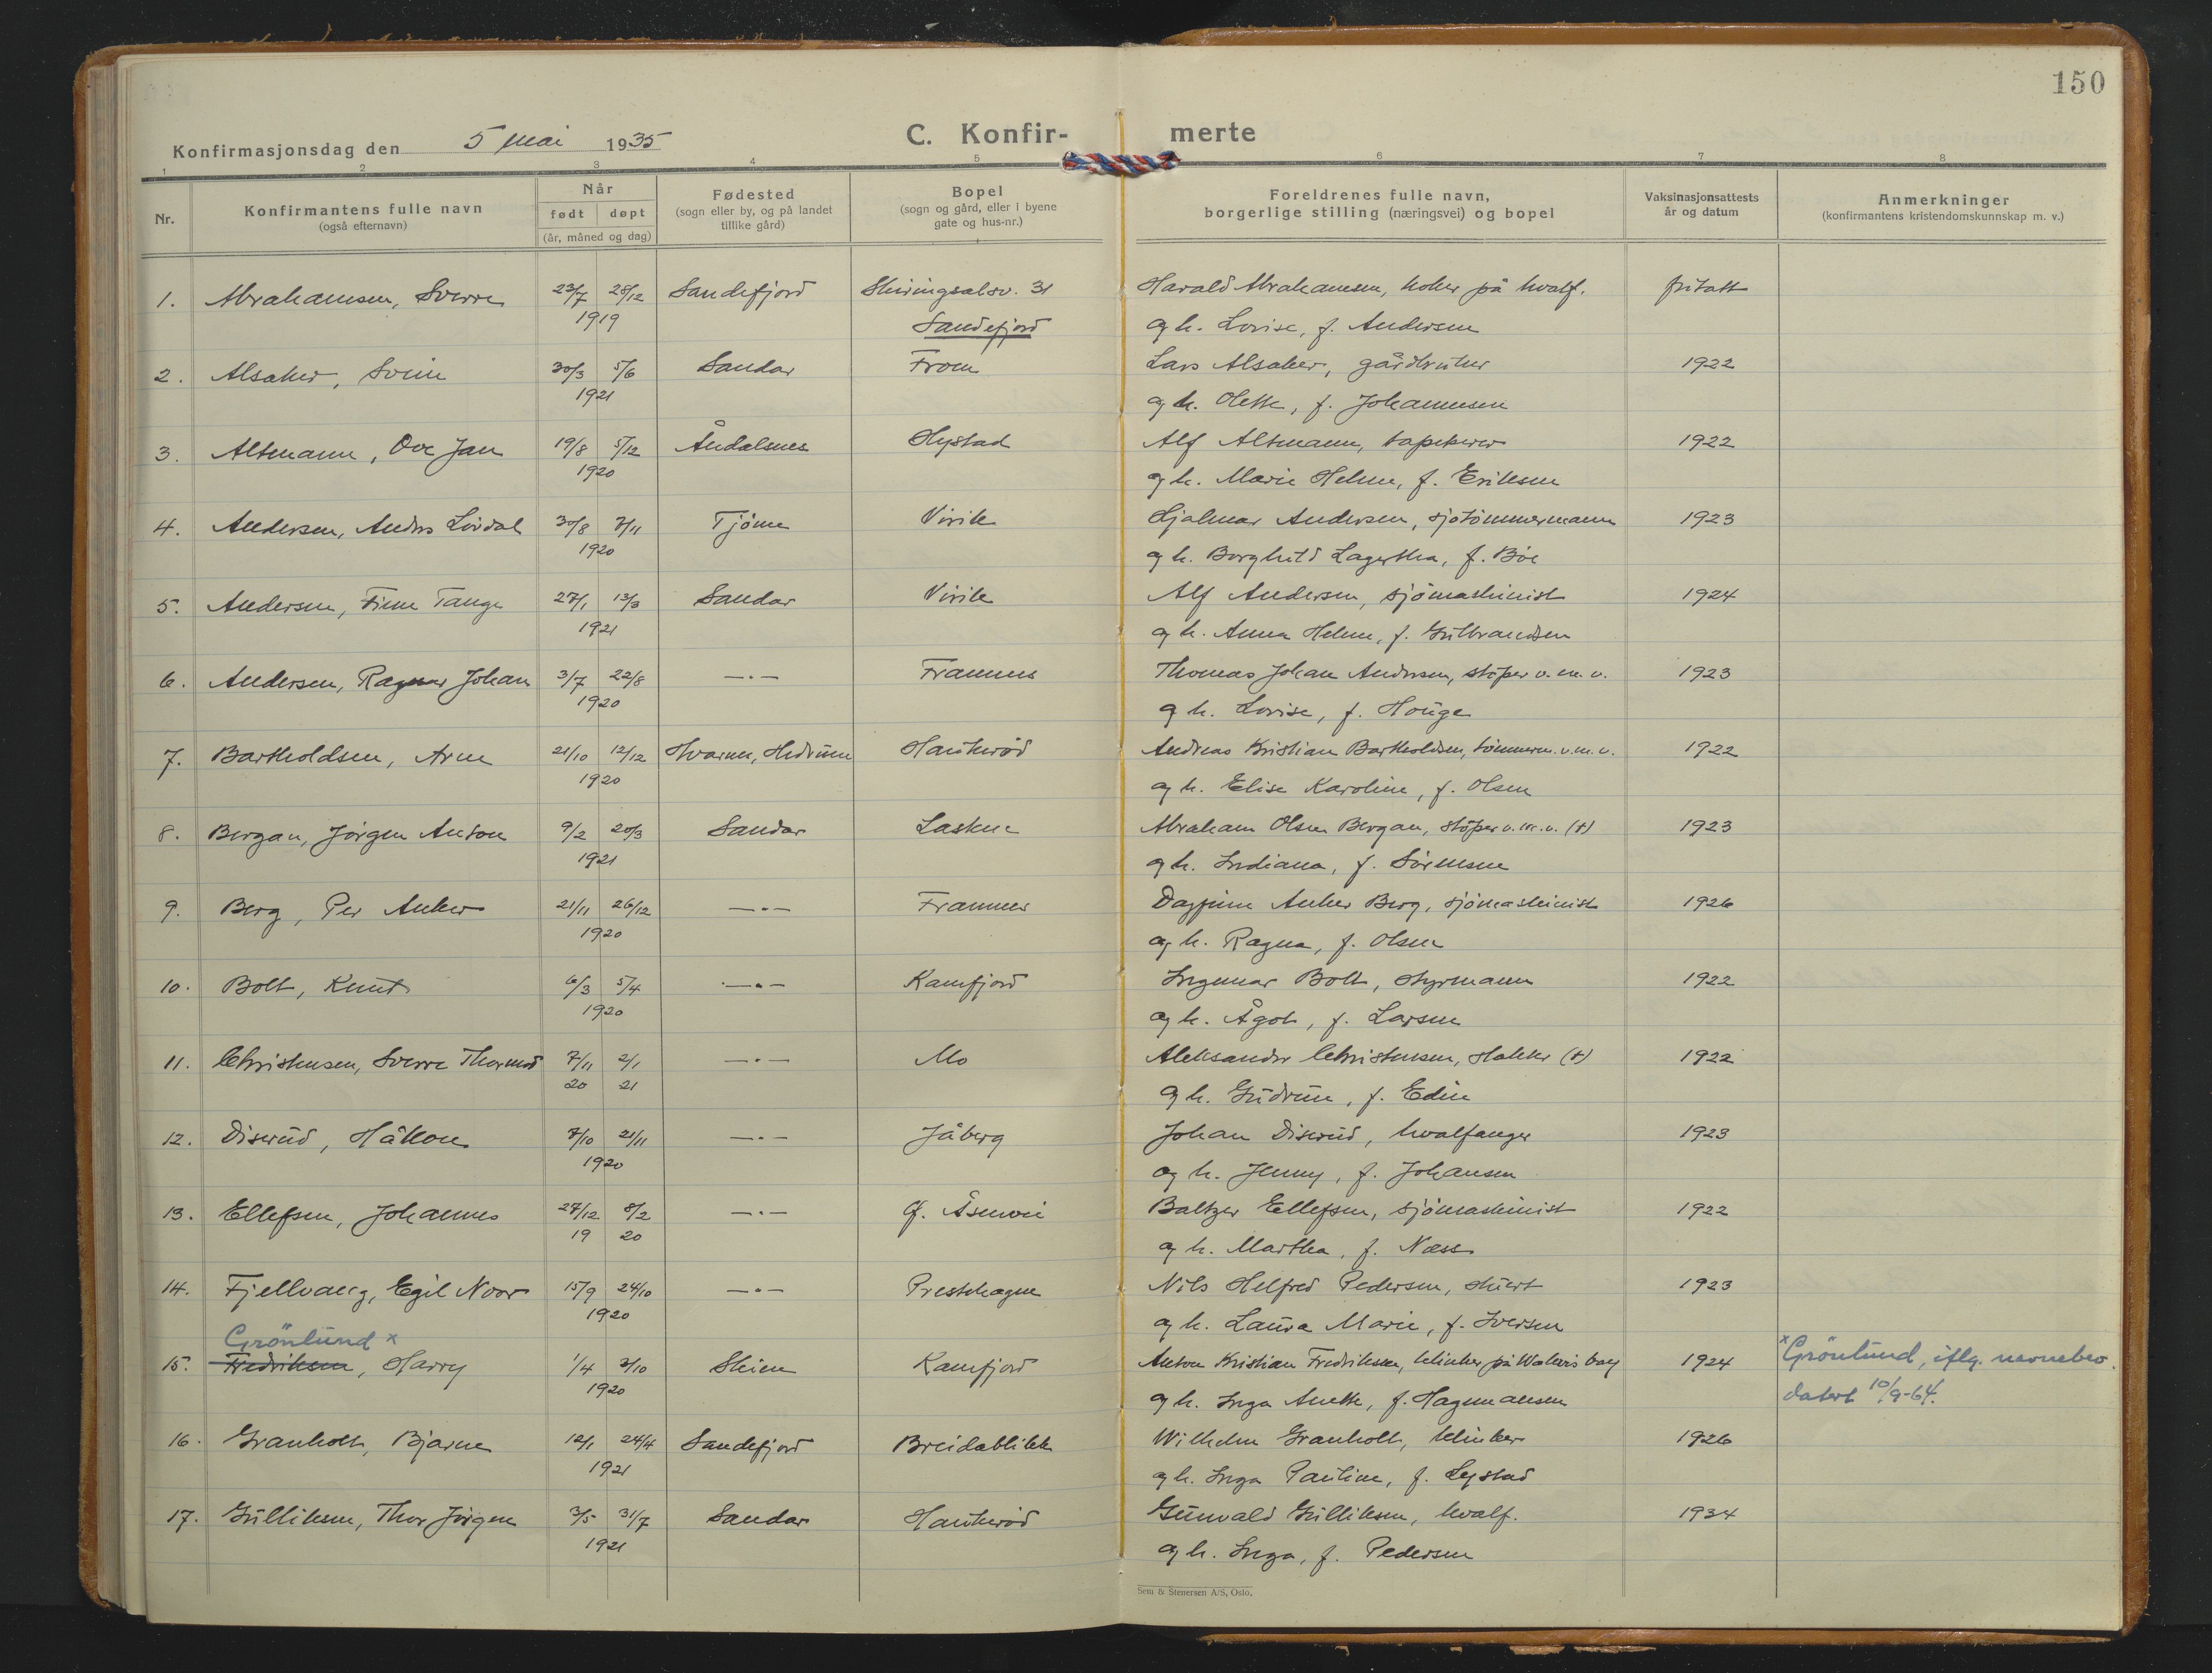 150
Konfirmasjonsdag den 5 mai 1935 C. Konfir- merte
1 2 3 4 5 6 7 8
Nr. Konfirmantens fulle navn (også efternavn) Når født døpt (år, måned og dag) Fødested (sogn eller by, og på landet tillike gård) Bopel (sogn og gård, eller i byene gate og hus-nr.) Foreldrenes fulle navn, borgerlige stilling (næringsvei) og bopel Vaksinasjonsattests år og datum Anmerkninger (konfirmantens kristendomskunnskap m. v.)
1. Abrahamsen, Sverre 23/7 28/12 Sandefjord Skiringsalsv. 31 Harald Abrahamsen, koker på hvalf. fritatt
1919 Sandefjord og h. Lovise, f. Andersen
2. Alsaker, Svein 30/3 5/6 Sandar From Lars Alsaker, gårdbruker 1922
1921 og h. Olette, f. Johannesen
3. Altmann, Ove Jan 19/8 5/12 Åndalsnes Hystad Alf Altmann, tapetserer 1922
1920 og h. Marie Helene, f. Eriksen
4. Andersen, Anders Lövdal 30/8 7/11 Tjöme Virik Hjalmar Andersen, sjötömmermann 1923
1920 og h. Borghild Lagertha, f. Böe
5. Andersen, Finn Tange 27/1 13/3 Sandar Virik Alf Andersen, sjömaskinist 1924
1921 og h. Anna Helene, f. Gulbrandsen
6. Andersen, Ragnar Johan 3/7 22/8 —·— Framnes Thomas Johan Andersen, stöper v.m.v. 1923
1920 og h. Lovise, f. Houge
7. Bartholdsen, Arne 21/10 12/12 Hvarnes, Hedrum Haukeröd Andreas Kristian Bartholdsen, tömmerm. v.m.v. 1922
1920 og h. Elise Karoline, f. Olsen
8. Bergan, Jörgen Anton 9/2 20/3 Sandar Lasken Abraham Olsen Bergan, stöper v.m.v. (†) 1923
1921 og h. Indiana, f. Sörensen
9. Berg, Per Anker 21/11 26/12 —·— Framnes Dagfinn Anker Berg, sjömaskinist 1926
1920 og h. Ragna, f. Olsen
10. Bolt, Knut 6/3 5/4 —·— Kamfjord Ingemar Bolt, styrmann 1922
1920 og h. Ågot, f. Larsen
11. Christensen, Sverre Thormod 7/11 2/1 —·— Mo Aleksander Christensen, slakter (†) 1922
20 21 og h. Gudrun, f. Edin
12. Diserud, Håkon 7/10 21/11 —·— Jåberg Johan Diserud, hvalfanger 1923
1920 og h. Jenny, f. Johansen
13. Ellefsen, Johannes 27/12 8/2 —·— Åsenvei Baltzer Ellefsen, sjömaskinist 1922
19 20 og h. Martha, f. Næss
14. Fjellvang, Egil Noor 15/9 24/10 —·— Prestehagen Nils Helfred Pedersen, stuert 1923
1920 og h. Laura Marie, f. Iversen
Grönlund x
15. Fredriksen, Harry 1/4 3/10 Skien Kamfjord Anton Kristian Fredriksen, klinker på Walvis bay 1924 x Grönlund, iflg. navnebev.
1920 og h. Inga Anette, f. Hagemansen datert 10/9-64.
16. Granholt, Bjarne 12/1 24/4 Sandefjord Breidablikk Wilhelm Granholt, klinker 1926
1921 og h. Inga Pauline, f. Lystad
17. Gulliksen, Thor Jörgen 3/5 31/7 Sandar Haukeröd Gunvald Gulliksen, hvalf. 1934
1921 og h. Inga, f. Pedersen
Sem & Stenersen A/S, Oslo.